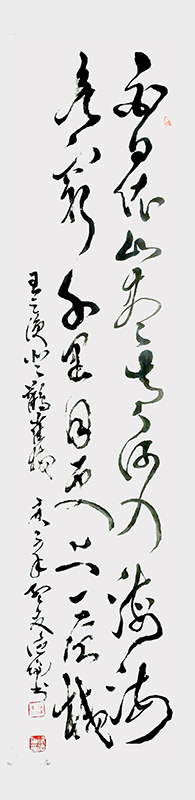 白日依山盡黃河入海流
欲窮千里目更上一層樓
王之渙登鸛雀樓 年 書